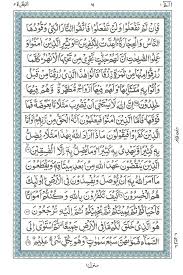 فَاِنْ لَّمْ تَفْعَلُوْا وَلَنْ تَفْعَلُوْا فَاتَّقُوا النَّارَ الَّتِيْ وَقُوْدُهَا
النَّاسُ وَالْحِجَارَةُ اُعِدَّتْ لِلْكٰفِرِيْنَ وَبَشِّرِ الَّذِيْنَ اٰمَنُوْا وَ
عَمِلُوا الصّٰلِحٰتِ اَنَّ لَهُمْ جَنّٰتٍ تَجْرِيْ مِنْ تَحْتِهَا الْاَنْهٰرُ
كُلَّمَا رُزِقُوْا مِنْهَا مِنْ ثَمَرَةٍ رِّزْقًا قَالُوْا هٰذَا الَّذِيْ رُزِقْنَا مِنْ قَبْلُ
وَاُتُوْا بِهٖ مُتَشَابِهًا وَلَهُمْ فِيْهَا اَزْوَاجٌ مُّطَهَّرَةٌ وَّهُمْ فِيْهَا
خٰلِدُوْنَ اِنَّ اللّٰهَ لَا يَسْتَحْيٖ اَنْ يَّضْرِبَ مَثَلًا مَّا بَعُوْضَةً فَمَا
فَوْقَهَا فَاَمَّا الَّذِيْنَ اٰمَنُوْا فَيَعْلَمُوْنَ اَنَّهُ الْحَقُّ مِنْ رَّبِّهِمْ وَاَمَّا
الَّذِيْنَ كَفَرُوْا فَيَقُوْلُوْنَ مَاذَا اَرَادَ اللّٰهُ بِهٰذَا مَثَلًا يُضِلُّ
بِهٖ كَثِيْرًا وَّيَهْدِيْ بِهٖ كَثِيْرًا وَمَا يُضِلُّ بِهٖ اِلَّا الْفٰسِقِيْنَ
الَّذِيْنَ يَنْقُضُوْنَ عَهْدَ اللّٰهِ مِنْ بَعْدِ مِيْثَاقِهٖ وَيَقْطَعُوْنَ
مَا اَمَرَ اللّٰهُ بِهٖ اَنْ يُّوْصَلَ وَيُفْسِدُوْنَ فِي الْاَرْضِ اُولٰٓئِكَ
هُمُ الْخٰسِرُوْنَ كَيْفَ تَكْفُرُوْنَ بِاللّٰهِ وَكُنْتُمْ اَمْوَاتًا
فَاَحْيَاكُمْ ثُمَّ يُمِيْتُكُمْ ثُمَّ يُحْيِيْكُمْ ثُمَّ اِلَيْهِ تُرْجَعُوْنَ
هُوَ الَّذِيْ خَلَقَ لَكُمْ مَّا فِي الْاَرْضِ جَمِيْعًا ثُمَّ اسْتَوٰٓى اِلَى
السَّمَآءِ فَسَوّٰىهُنَّ سَبْعَ سَمٰوٰتٍ وَهُوَ بِكُلِّ شَيْءٍ عَلِيْمٌ
منزل ١